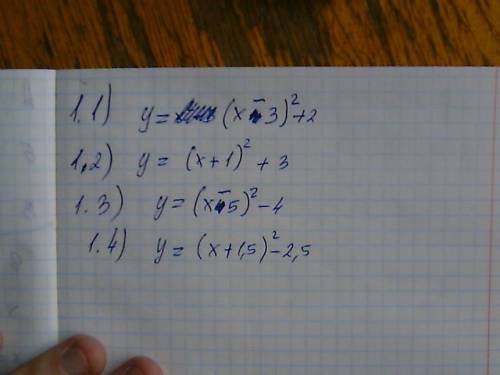 1.1) y = (x - 3)² + 2
1,2) y = (x + 1)² + 3
1.3) y = (x - 5)² - 4
1.4) y = (x + 1,5)² - 2,5